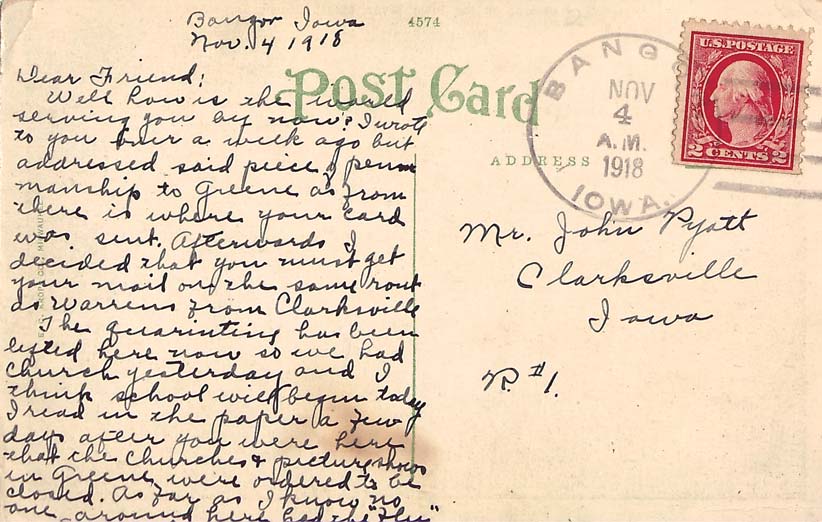 Bangor Iowa
Nov. 4 1918
4574
Dear Friend:
Well how is the world
serving you by now? I wrote
to you over a week ago but
addressed said piece of penn
manship to Greene as from
there is where your card
was sent. Afterwards I
decided that you must get
your mail on the same rout
as Warrens from Clarksville
The quarinting has been
lifted here now so we had
church yesterday and I
think school will begin today
I read in the paper a few
days after you were here
that the churches & picture shows
in Greene were ordered to be
closed. As far as I know no
one around here had the "Flu"
Post Card
ADDRESS
BANG
NOV
4
A.M.
1918
IOWA.
U.S. POSTAGE
2 CENTS 2
Mr. John Pyatt
Clarksville
Iowa
R. #1.